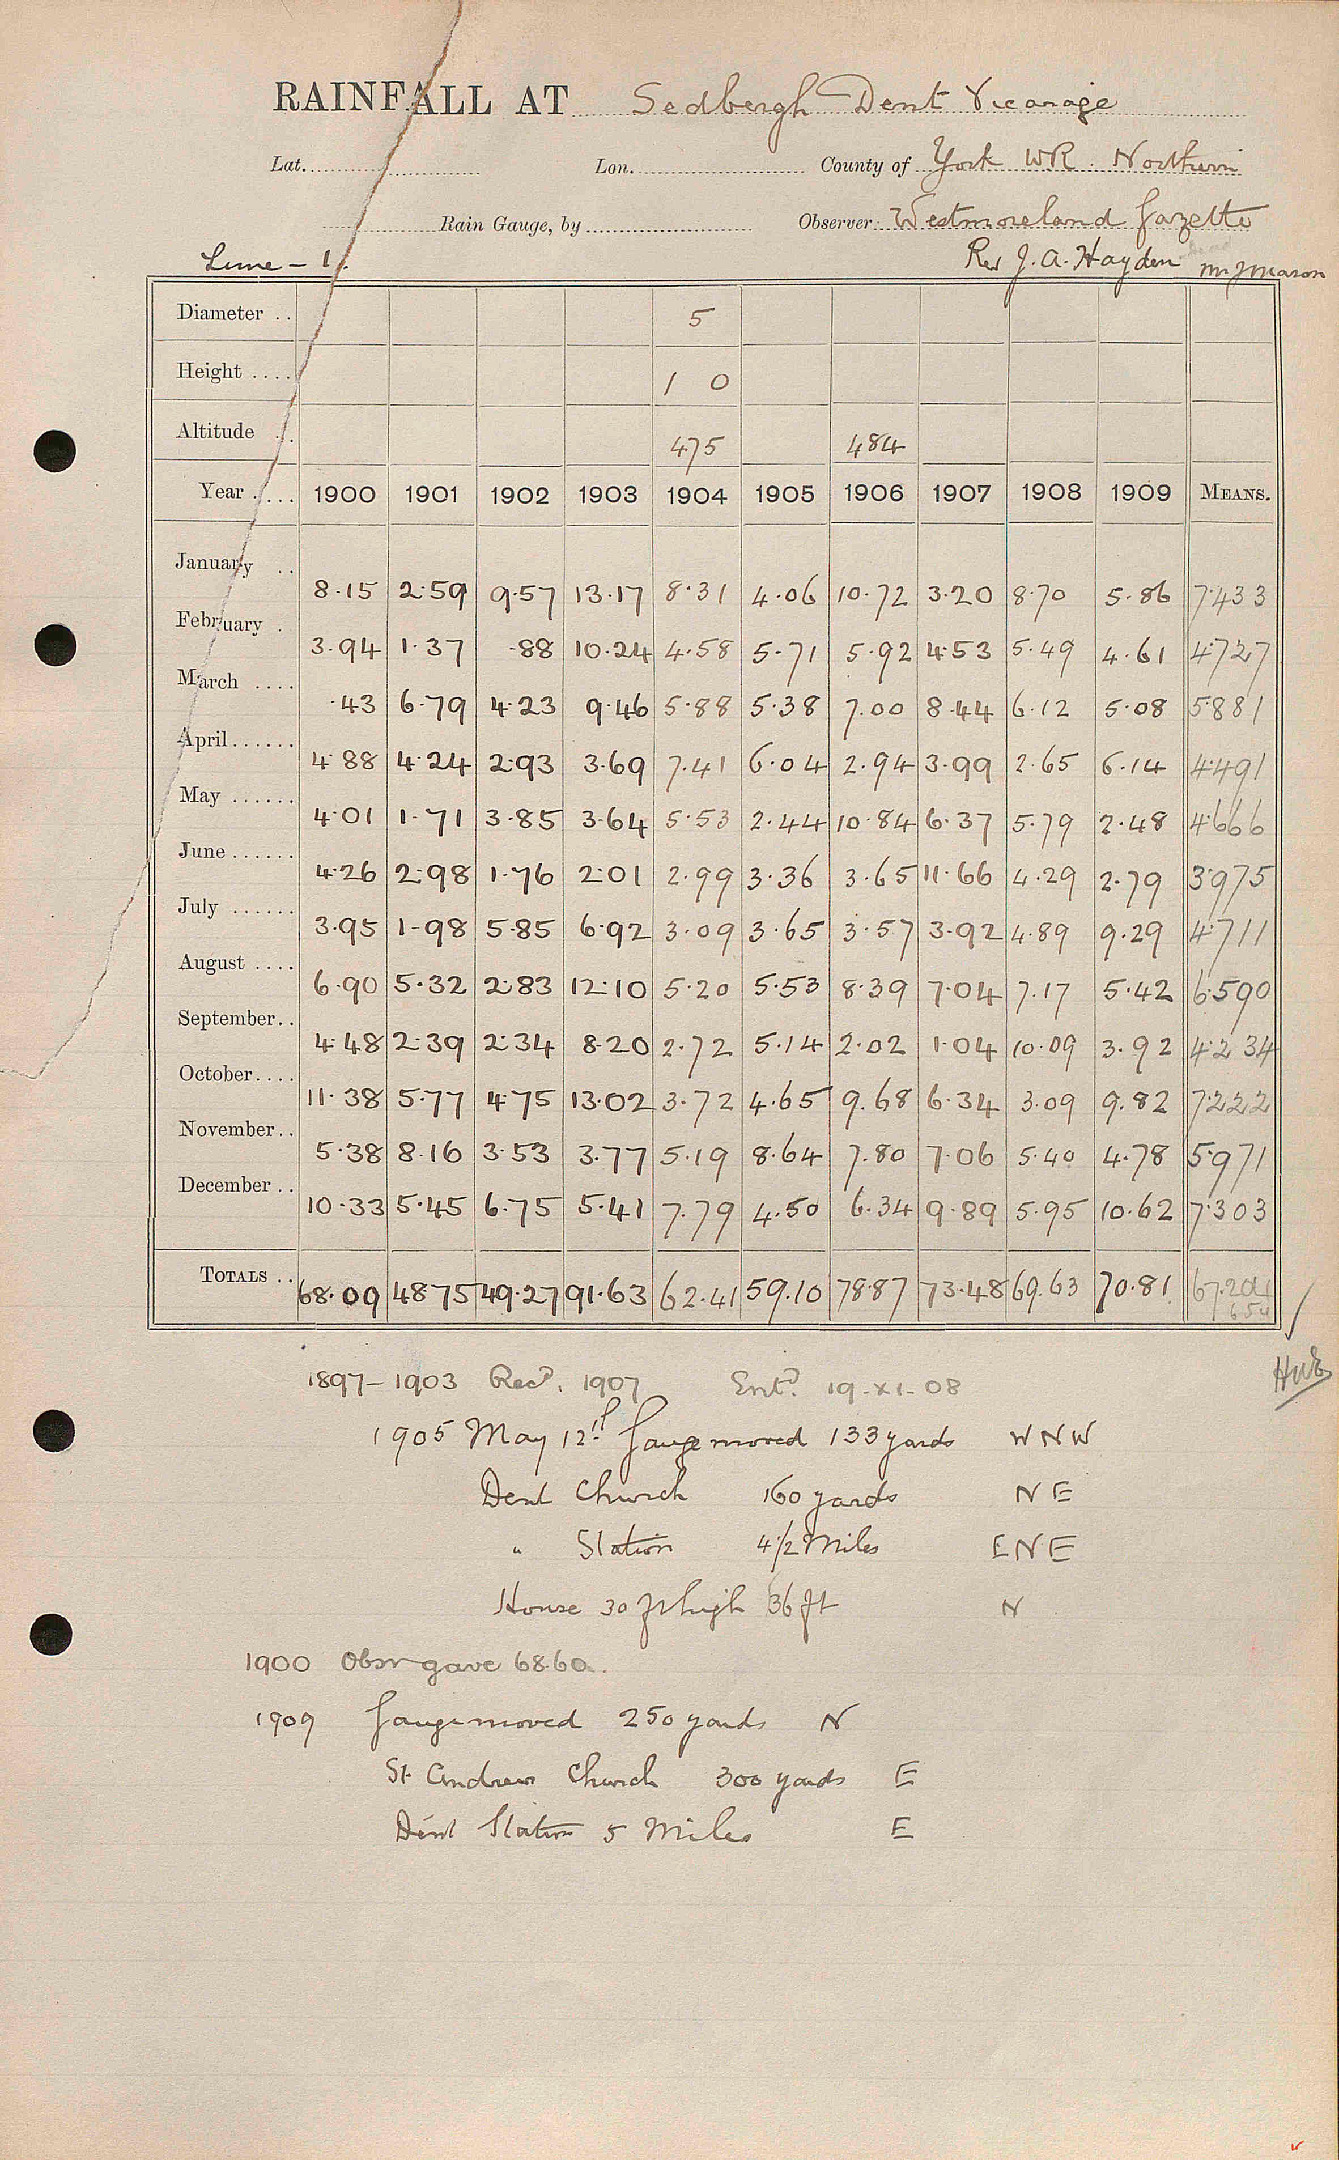 RAINFALL AT Sedbergh Dent Vicarage
Lat. Lon. County of York WR. Northern
Rain Gauge, by Observer: Westmoreland Gazette
Lune - 1. Rev J. A. Hayden Mr J Mason
Diameter .. 5
Height .... 1 0
Altitude .. 475 484
Year .... 1900 1901 1902 1903 1904 1905 1906 1907 1908 1909 MEANS.
January .. 8.15 2.59 9.57 13.17 8.31 4.06 10.72 3.20 8.70 5.86 7.433
February . 3.94 1.37 .88 10.24 4.58 5.71 5.92 4.53 5.49 4.61 4.727
March .... .43 6.79 4.23 9.46 5.88 5.38 7.00 8.44 6.12 5.08 5.881
April...... 4.88 4.24 2.93 3.69 7.41 6.04 2.94 3.99 2.65 6.14 4.491
May ...... 4.01 1.71 3.85 3.64 5.53 2.44 10.84 6.37 5.79 2.48 4.666
June ...... 4.26 2.98 1.76 2.01 2.99 3.36 3.65 11.66 4.29 2.79 3.975
July ...... 3.95 1.98 5.85 6.92 3.09 3.65 3.57 3.92 4.89 9.29 4.711
August .... 6.90 5.32 2.83 12.10 5.20 5.53 8.39 7.04 7.17 5.42 6.590
September.. 4.48 2.39 2.34 8.20 2.72 5.14 2.02 1.04 10.09 3.92 4.234
October.... 11.38 5.77 4.75 13.02 3.72 4.65 9.68 6.34 3.09 9.82 7.222
November.. 5.38 8.16 3.53 3.77 5.19 8.64 7.80 7.06 5.40 4.78 5.971
December .. 10.33 5.45 6.75 5.41 7.79 4.50 6.34 9.89 5.95 10.62 7.303
TOTALS .. 68.09 48.75 49.27 91.63 62.41 59.10 78.87 73.48 69.63 70.81 67.204
1897-1903 Recd. 1907 Entd. 19-XI-08
1905 May 12th Gauge moved 133 yards WNW
Dent Church 160 yards NE
" Station 4 1/2 Miles ENE
House 30 ft high 36 ft N
1900 Obsr gave 68.60.
1909 Gauge moved 250 yards N
St Andrew Church 300 yards E
Dent Station 5 Miles E